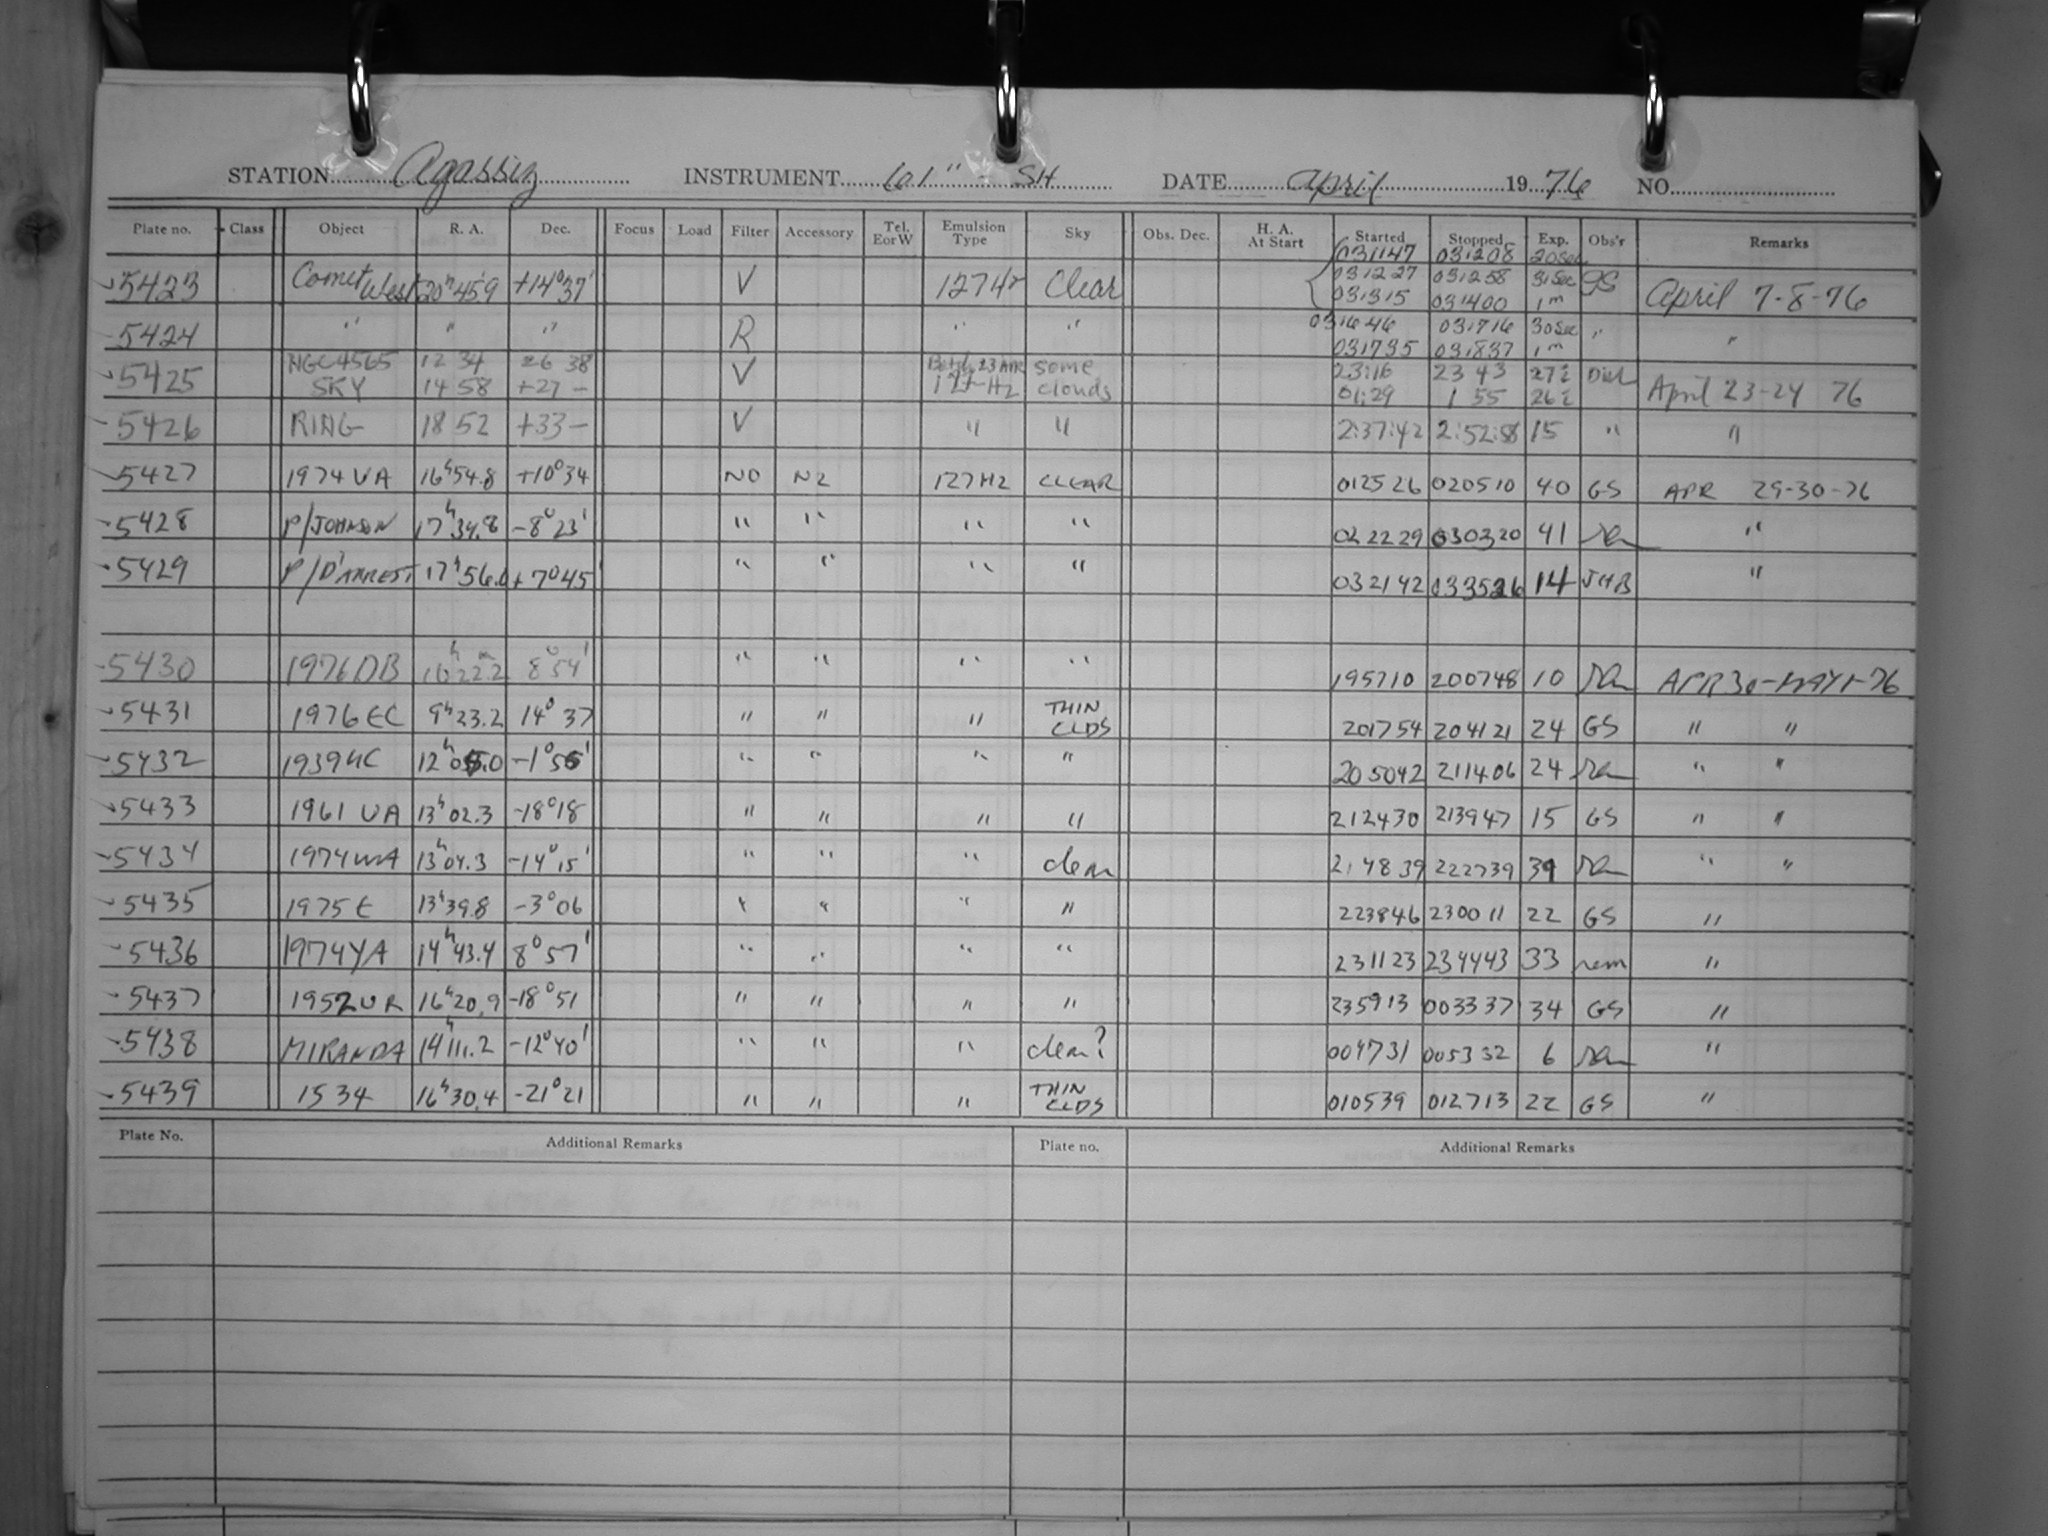 STATION Agassiz INSTRUMENT 61" - SH DATE April 1976 NO.
Plate no. Class Object R. A. Dec. Focus Load Filter Accessory Tel. EorW Emulsion Type Sky Obs. Dec. H. A. At Start Started Stopped Exp. Obs'r Remarks
031147 031208 20sec
5423 Comet West 20h 45.9 +14° 37' V 127Hz Clear 031227 031258 31sec GS April 7-8-76
031315 031400 1m
5424 " " " R " " 031646 031716 30sec " "
031735 031837 1m
5425 NGC4565 12 34 26 38 V 23 APR some 23:16 23 43 27
SKY 14 58 +27 - 127-Hz clouds 01:29 1 55 26 April 23-24 76
5426 RING 18 52 +33 - V " " 2:37:42 2:52:58 15 " "
5427 1974 UA 16h 54.8 +10° 34 NO N2 127Hz CLEAR 012526 020510 40 GS APR 29-30-76
5428 P/JOHNSON 17h 34.8 -8° 23' " " " " 022229 030320 41 "
5429 P/D'ARREST 17h 56.0 +7° 45' " " " " 032142 033526 14 JHB "
5430 1976DB 10h 22.2m 8° 54' " " " " 195710 200748 10 APR30-MAY1-76
5431 1976 EC 9h 23.2 14° 37 " " " THIN CLDS 201754 204121 24 GS " "
5432 1939UC 12h 05.0 -1° 56' " " " " 205042 211406 24 " "
5433 1961 UA 13h 02.3 -18° 18 " " " " 212430 213947 15 GS " "
5434 1974 WA 13h 04.3 -14° 15' " " " clear 214839 222739 39 " "
5435 1975 E 13h 39.8 -3° 06 " " " " 223846 230011 22 GS "
5436 1974YA 14h 43.4 8° 57' " " " " 231123 234443 33 rem "
5437 1952UR 16h 20.9 -18° 51 " " " " 235913 003337 34 GS "
5438 MIRANDA 14h 11.2 -12° 40' " " " clear? 004731 005332 6 "
5439 1534 16h 30.4 -21° 21 " " " THIN CLDS 010539 012713 22 GS "
Plate No. Additional Remarks Plate no. Additional Remarks